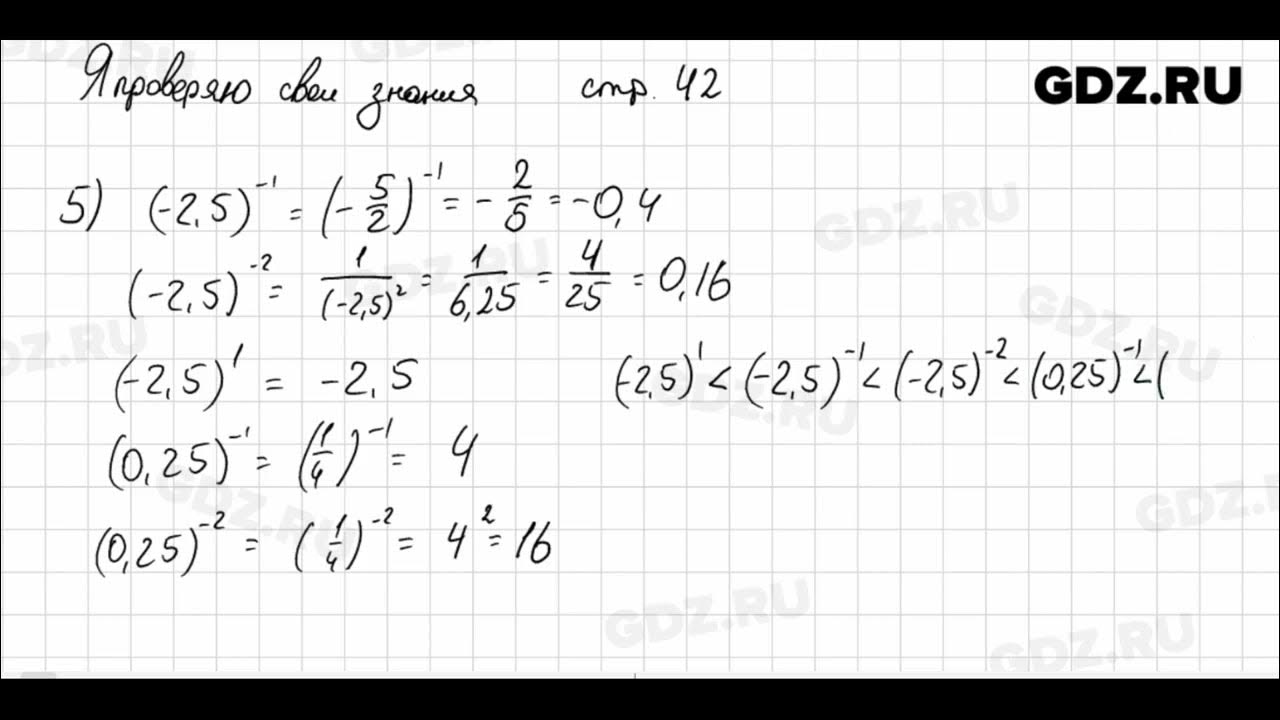 Я проверяю свои знания стр. 42
GDZ.RU
5) (-2,5)^{-1} = (-\frac{5}{2})^{-1} = -\frac{2}{5} = -0,4
(-2,5)^{-2} = \frac{1}{(-2,5)^2} = \frac{1}{6,25} = \frac{4}{25} = 0,16
(-2,5)^1 = -2,5
(-2,5)^1 < (-2,5)^{-1} < (-2,5)^{-2} < (0,25)^{-1} < (
(0,25)^{-1} = (\frac{1}{4})^{-1} = 4
(0,25)^{-2} = (\frac{1}{4})^{-2} = 4^2 = 16